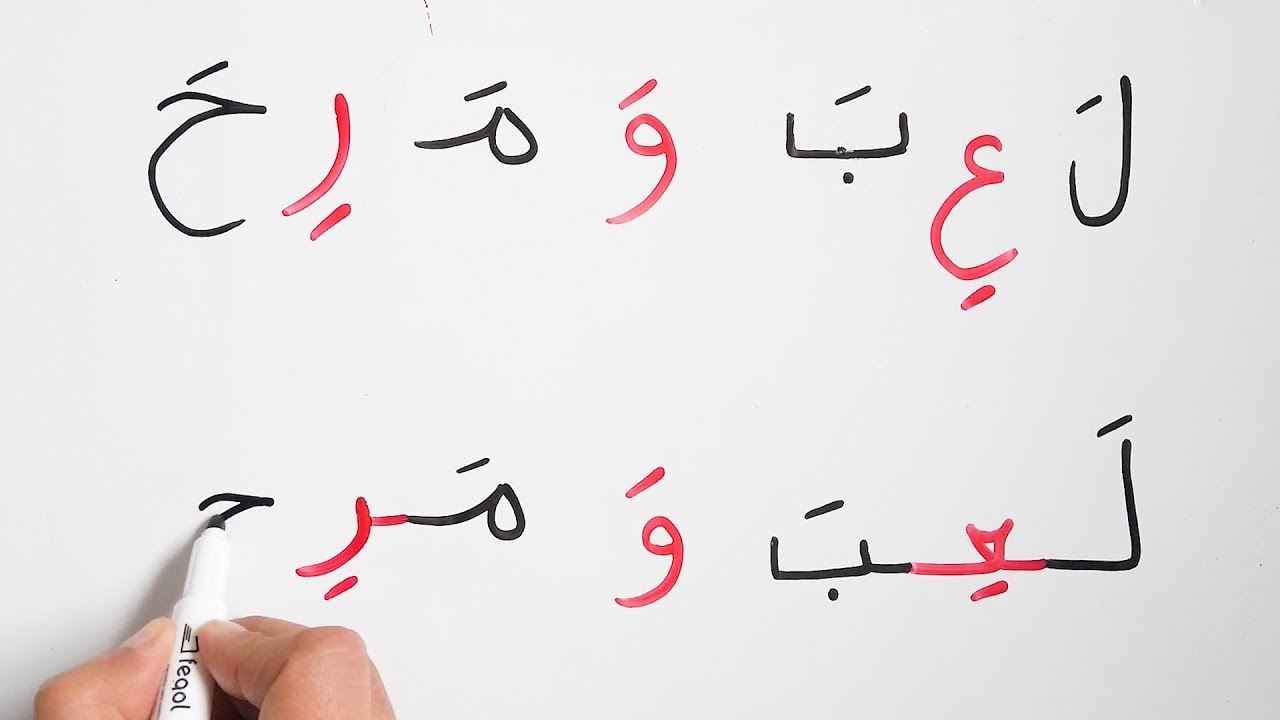 لَ عِ بَ وَ مَ رِ حَ
لَعِبَ وَ مَرِح
feqol